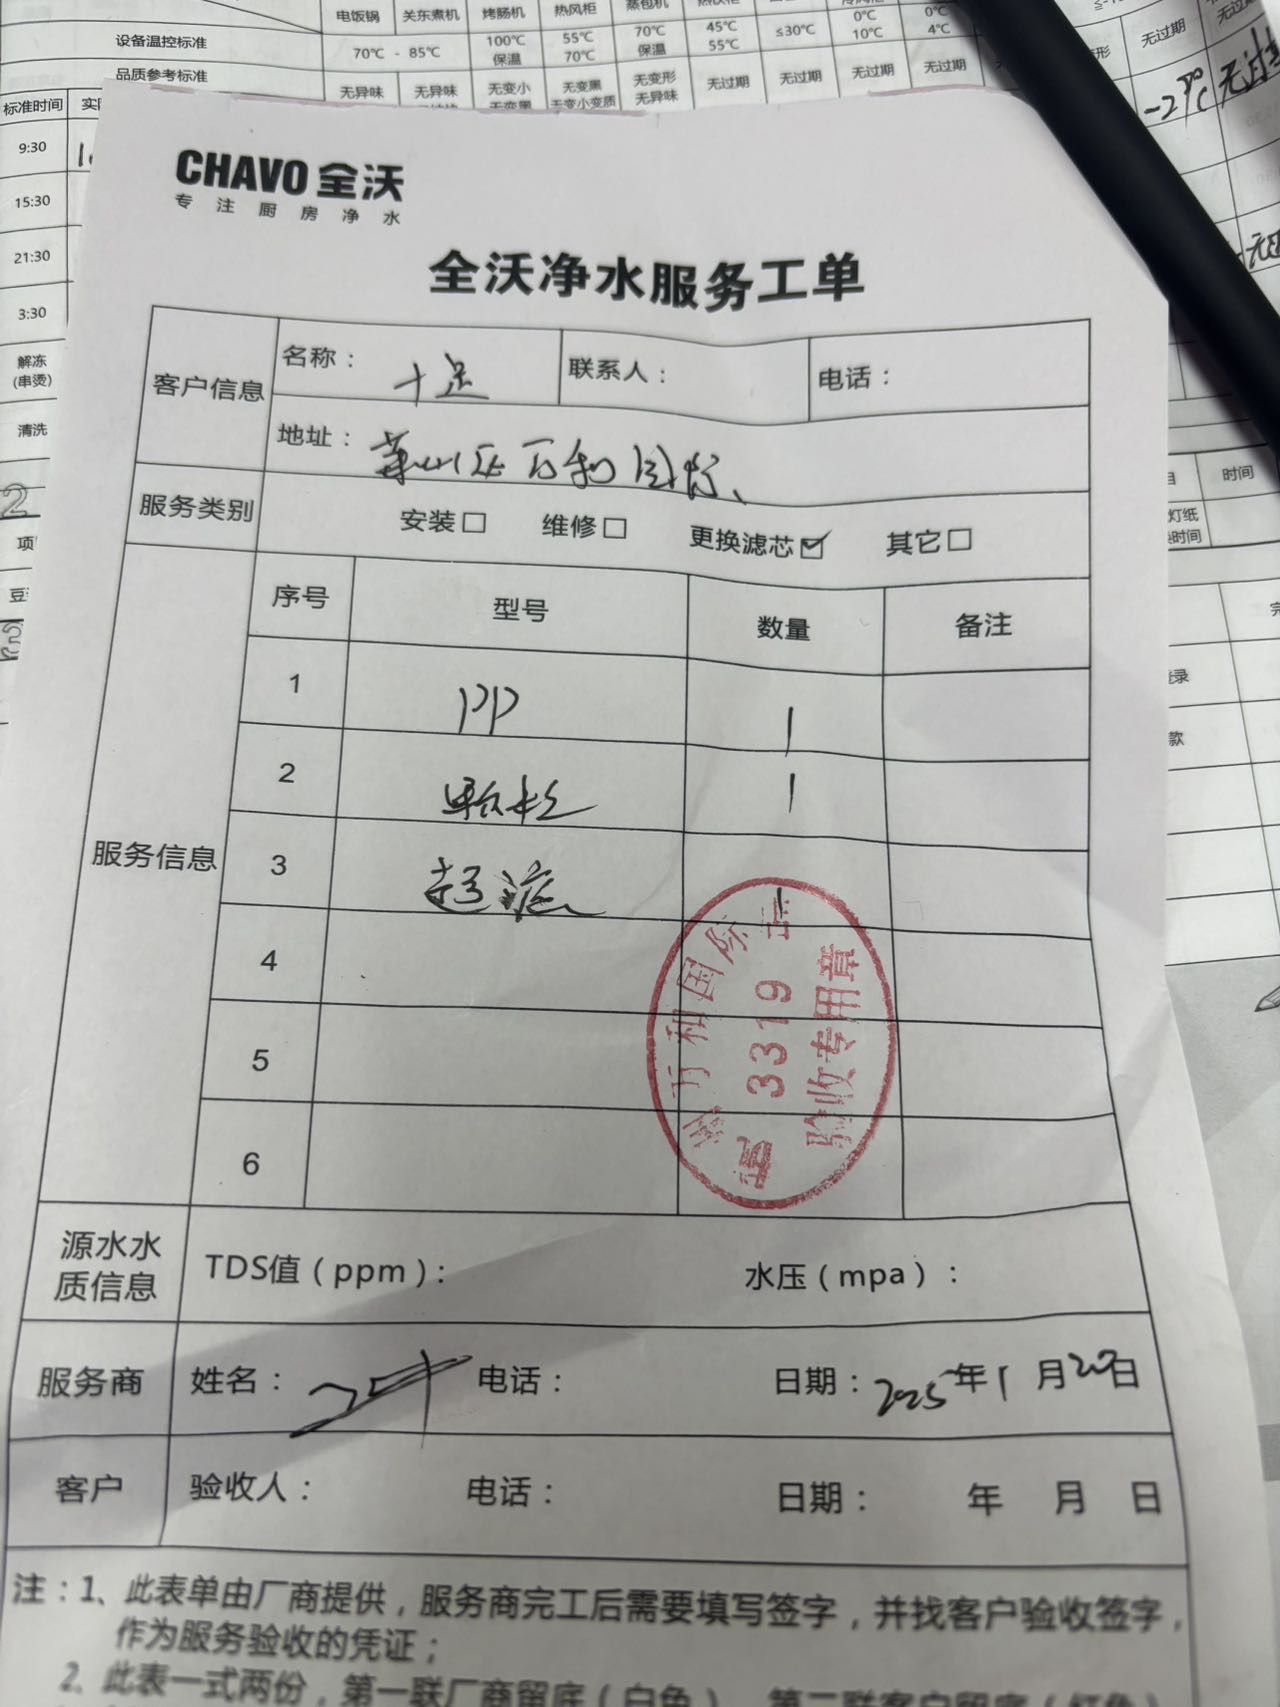 电饭锅 关东煮机 烤肠机 热风柜 蒸包机
设备温控标准 70℃ - 85℃ 100℃ 保温 55℃ 70℃ 70℃ 保温 45℃ 55℃ ≤30℃ 0℃ 10℃ 0℃ 4℃
品质参考标准 无异味 无异味 无变小 无变黑 无变小变质 无变形 无异味 无过期 无过期 无过期 无过期 无过期
标准时间
9:30
15:30
21:30
3:30
解冻
(串烫)
清洗
时间
CHAVO 全沃
专注厨房净水
全沃净水服务工单
客户信息 名称：十足 联系人： 电话：
地址：萧山区万和国际、
服务类别 安装□ 维修□ 更换滤芯☑ 其它□
服务信息 序号 型号 数量 备注
1 PP 1
2 颗粒 1
3 超滤 1
4
5
6
万和国际
3319
验收专用章
源水水质信息 TDS值（ppm）： 水压（mpa）：
服务商 姓名： 电话： 日期：2025年1月20日
客户 验收人： 电话： 日期： 年 月 日
注：1、此表单由厂商提供，服务商完工后需要填写签字，并找客户验收签字，
作为服务验收的凭证；
2、此表一式两份，第一联厂商留底（白色），第二联客户留底（红色）